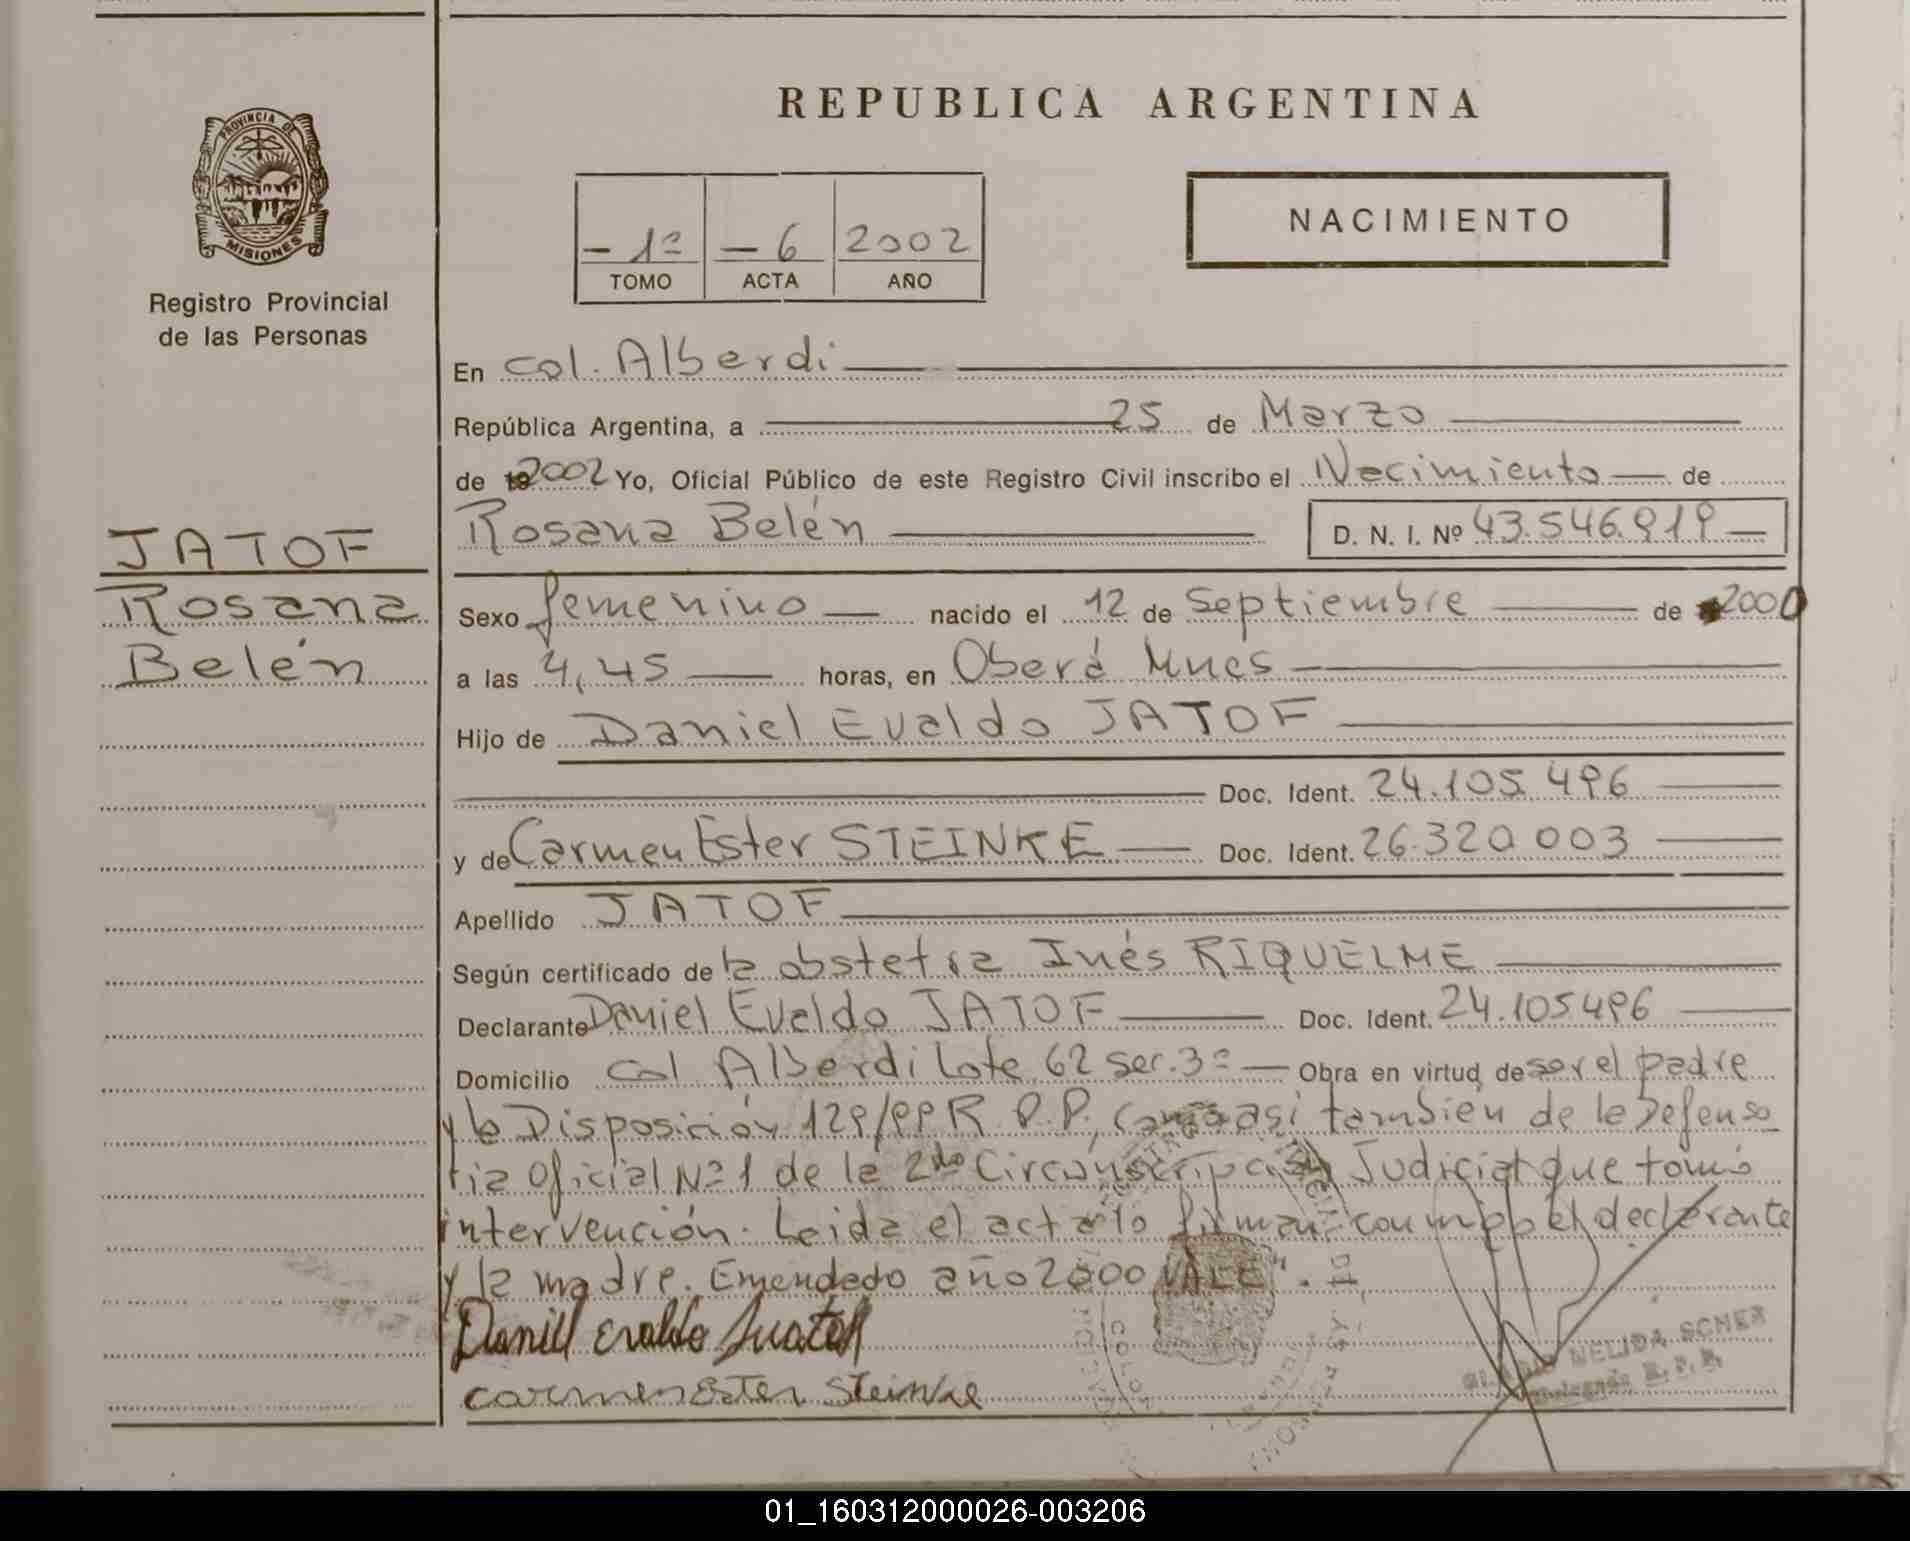 REPUBLICA ARGENTINA
PROVINCIA DE
MISIONES
Registro Provincial
de las Personas
- 1ª - 6 2002
TOMO ACTA AÑO
NACIMIENTO
JATOF
Rosana
Belén
En Col. Alberdi
República Argentina, a 25 de Marzo
de 2002 Yo, Oficial Público de este Registro Civil inscribo el Nacimiento de
Rosana Belén D. N. I. Nº 43.546.919
Sexo femenino nacido el 12 de Septiembre de 2000
a las 4,45 horas, en Oberá Mnes
Hijo de Daniel Evaldo JATOF
Doc. Ident. 24.105.496
y de Carmen Ester STEINKE Doc. Ident. 26.320.003
Apellido JATOF
Según certificado de la obstetra Inés RIQUELME
Declarante Daniel Evaldo JATOF Doc. Ident. 24.105496
Domicilio Col Alberdi Lote 62 Sec. 3ª Obra en virtud de ser el padre
y la Disposición 129/99 R.P.P, como asi también de la Defenso
ria Oficial Nº 1 de la 2da Circunscripción Judicial que tomó
intervención. Leida el acta lo firman conmigo el declarante
y la madre. Emendado año 2000 "VALE".
Daniel Evaldo
Carmen Ester Steinke
NELIDA SCHER
Delegada R. P. P.
01_160312000026-003206